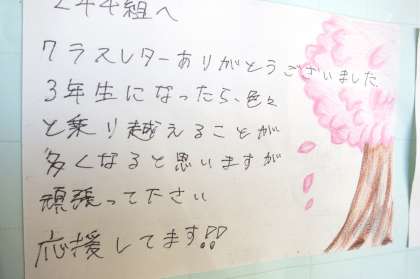 2年4組へ
クラスレターありがとうございました
3年生になったら、色々
と乗り越えることが
多くなると思いますが
頑張ってください
応援してます!!